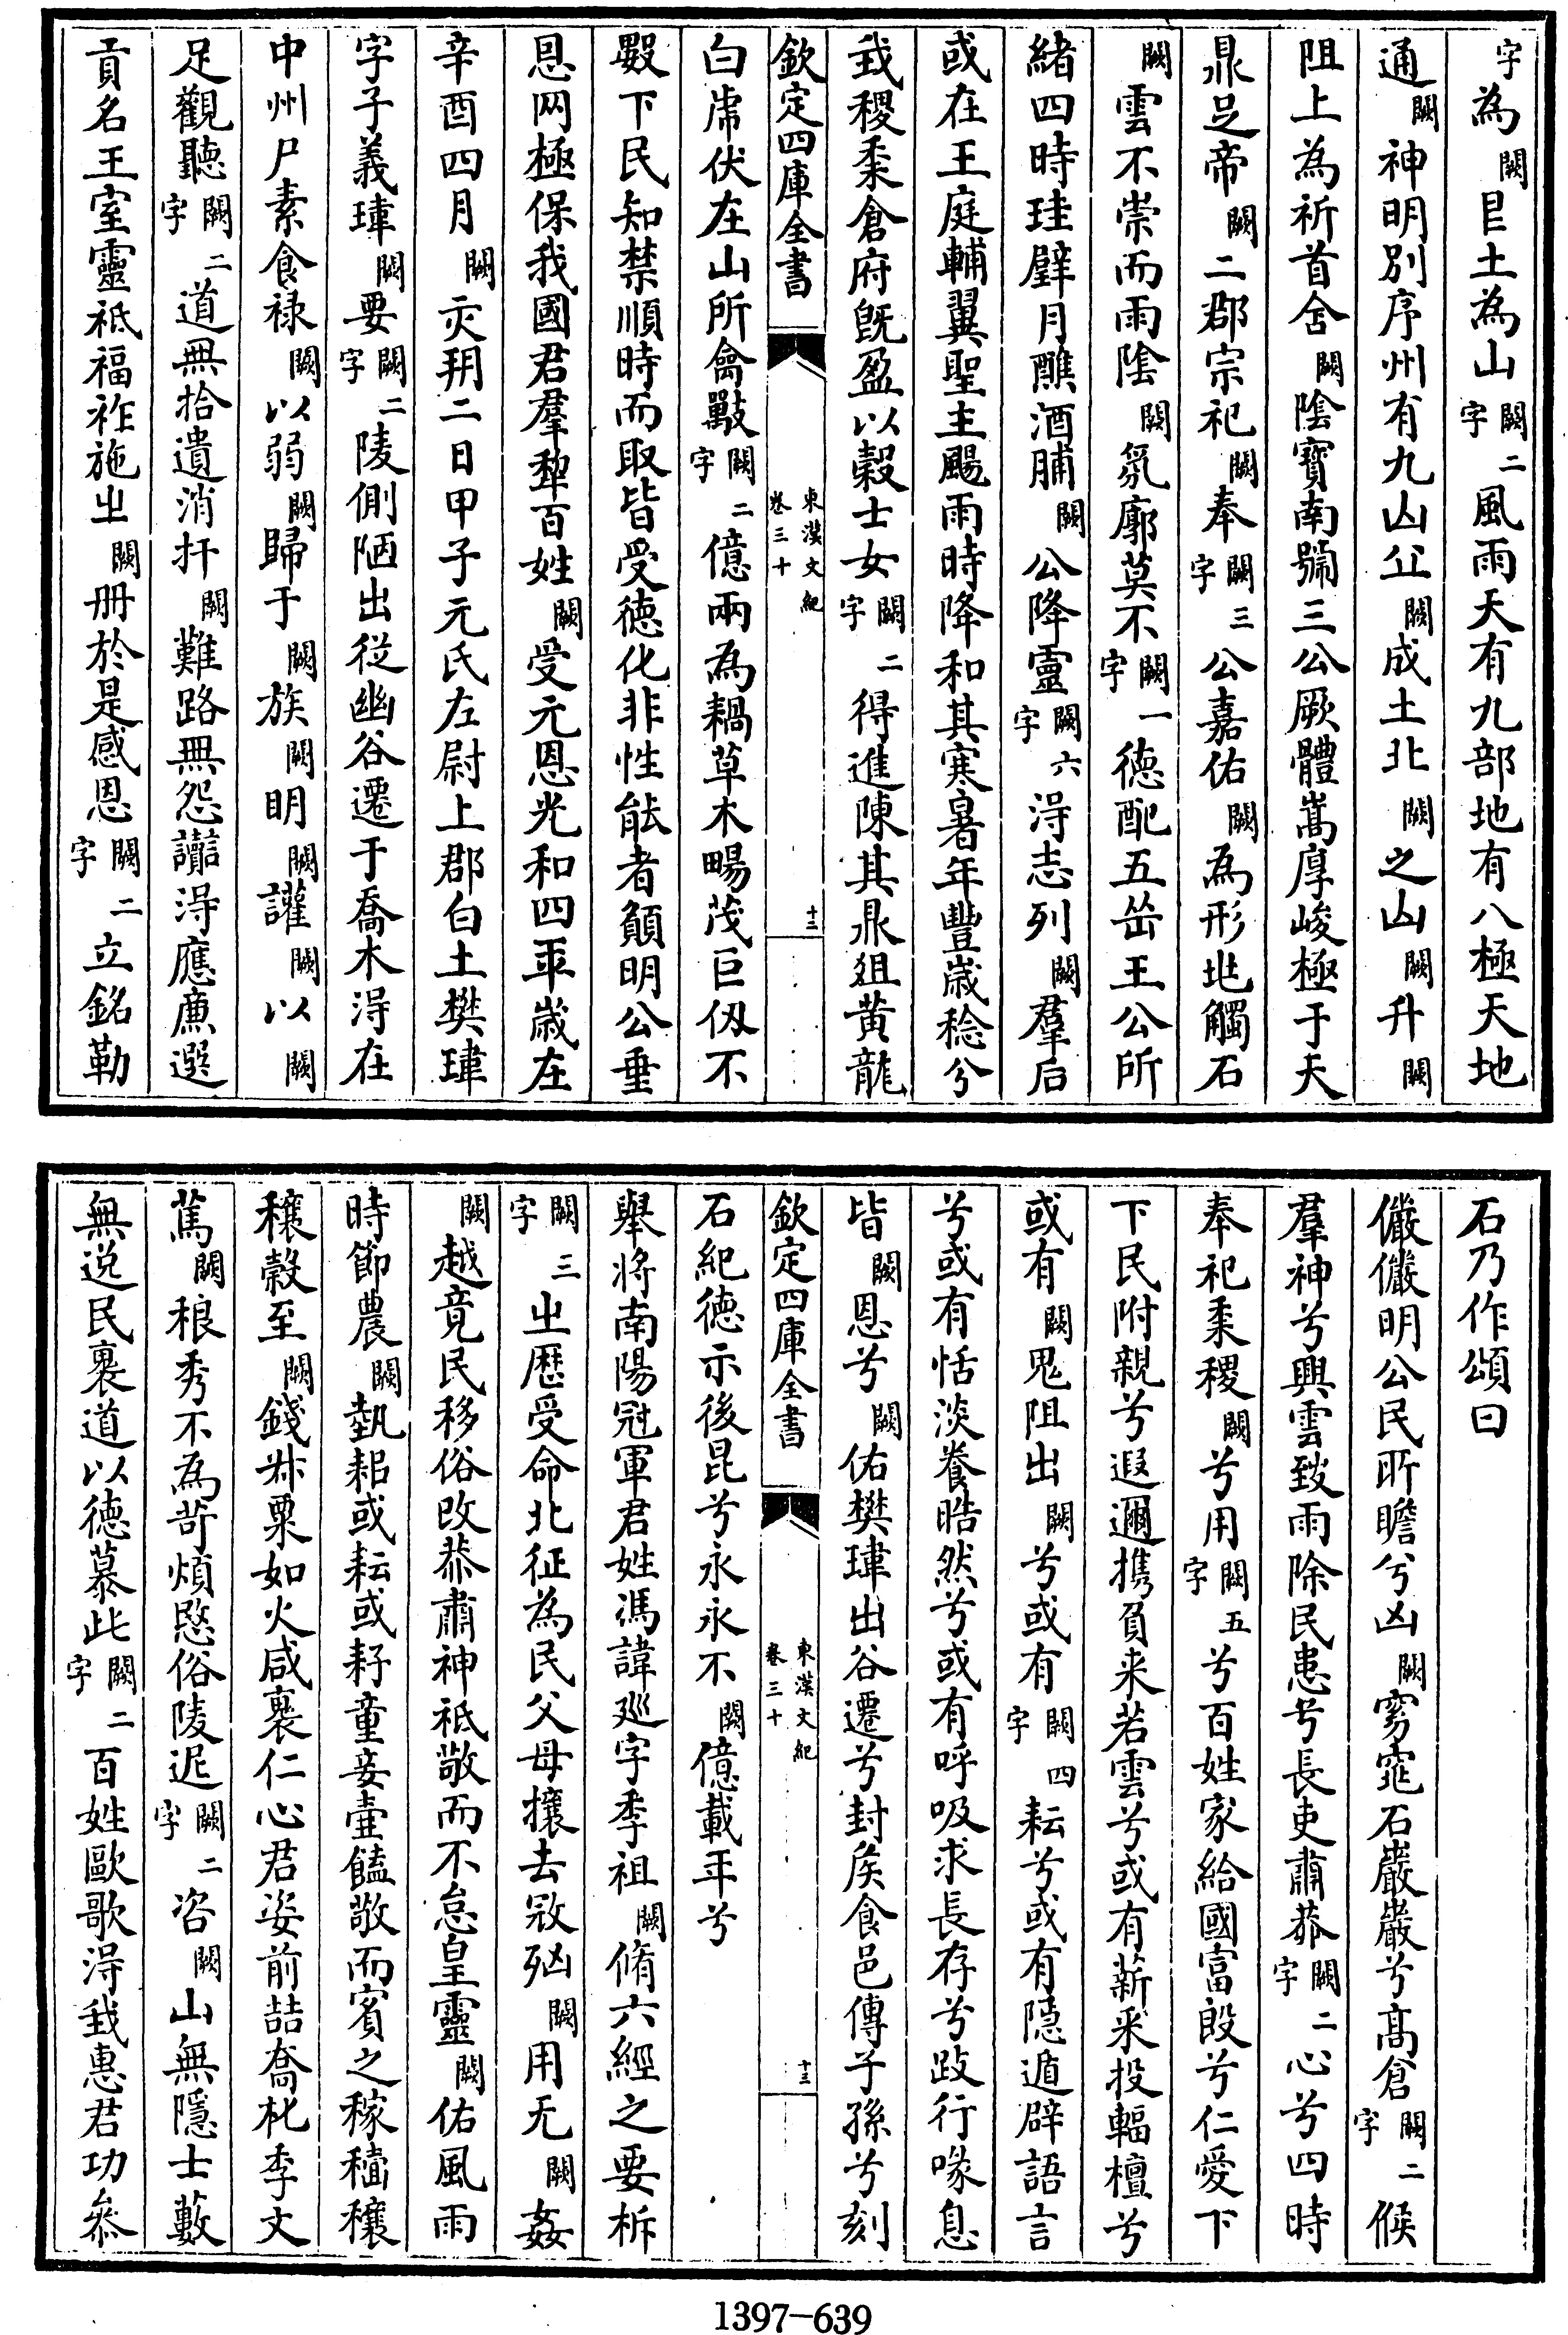 字為闕㠯土為山闕二字風雨天有九部地有八極天地
通闕神明別序州有九山丘闕成土北闕之山闕升闕
阻上為祈首舍闕陰寳南號三公厥體嵩厚峻極于天
鼎足帝闕二郡宗祀闕奉闕三字公嘉佑闕為形兆觸石
闕雲不崇而雨陰闕氛廓莫不闕一字德配五岳王公所
緒四時珪璧月醮酒脯闕公降靈闕六字得志列闕羣后
或在王庭輔翼聖主颺雨時降和其寒暑年豐歲稔兮
我稷黍倉府既盈以穀士女闕二字得進陳其鼎俎黄龍
欽定四庫全書
東漢文紀
卷三十
十三
白虎伏在山所禽獸闕二字億兩為耦草木暢茂巨仭不
數下民知禁順時而取皆受德化非性能者願明公垂
恩罔極保我國君羣犂百姓闕受元恩光和四年歲在
辛酉四月闕灾朔二日甲子元氏左尉上郡白土樊瑋
字子義瑋闕要闕二字陵側陋出從幽谷遷于喬木得在
中州尸素食禄闕以弱闕歸于闕族闕明闕讙闕以闕
足觀聽闕二字道無拾遺消扞闕難路無怨讟得應廉選
貢名王室靈祇福祚施㞢闕冊於是感恩闕二字立銘勒
石乃作頌曰
儼儼明公民所瞻兮凶闕窈窕石巖巖兮髙倉闕二字候
羣神兮興雲致雨除民患兮長吏肅恭闕二字心兮四時
奉祀黍稷闕兮用闕五字兮百姓家給國富殷兮仁愛下
下民附親兮遐邇携負来若雲兮或有薪采投輻檀兮
或有闕鬼阻出闕兮或有闕四字耘兮或有隱遁辟語言
兮或有恬淡養晧然兮或有呼吸求長存兮跂行喙息
皆闕恩兮闕佑樊瑋出谷遷兮封矦食邑傳子孫兮刻
欽定四庫全書
東漢文紀
卷三十
十三
石紀德示後昆兮永永不闕億載年兮
舉将南陽冠軍君姓馮諱廵字季祖闕脩六經之要析
闕三字㞢歷受命北征為民父母攘去寇殈闕用无闕姦
闕越竟民移俗改恭肅神祇敬而不怠皇靈闕佑風雨
時節農闕執耜或耘或耔童妾壷饁敬而賓之稼穡穰
穰穀至闕錢𠦑粟如火咸褱仁心君姿前喆喬札季文
篤闕稂秀不為苛煩愍俗陵遲闕二字咨闕山無隱士藪
無逃民褱道以德慕此闕二字百姓歐歌得我惠君功叅
1397-639